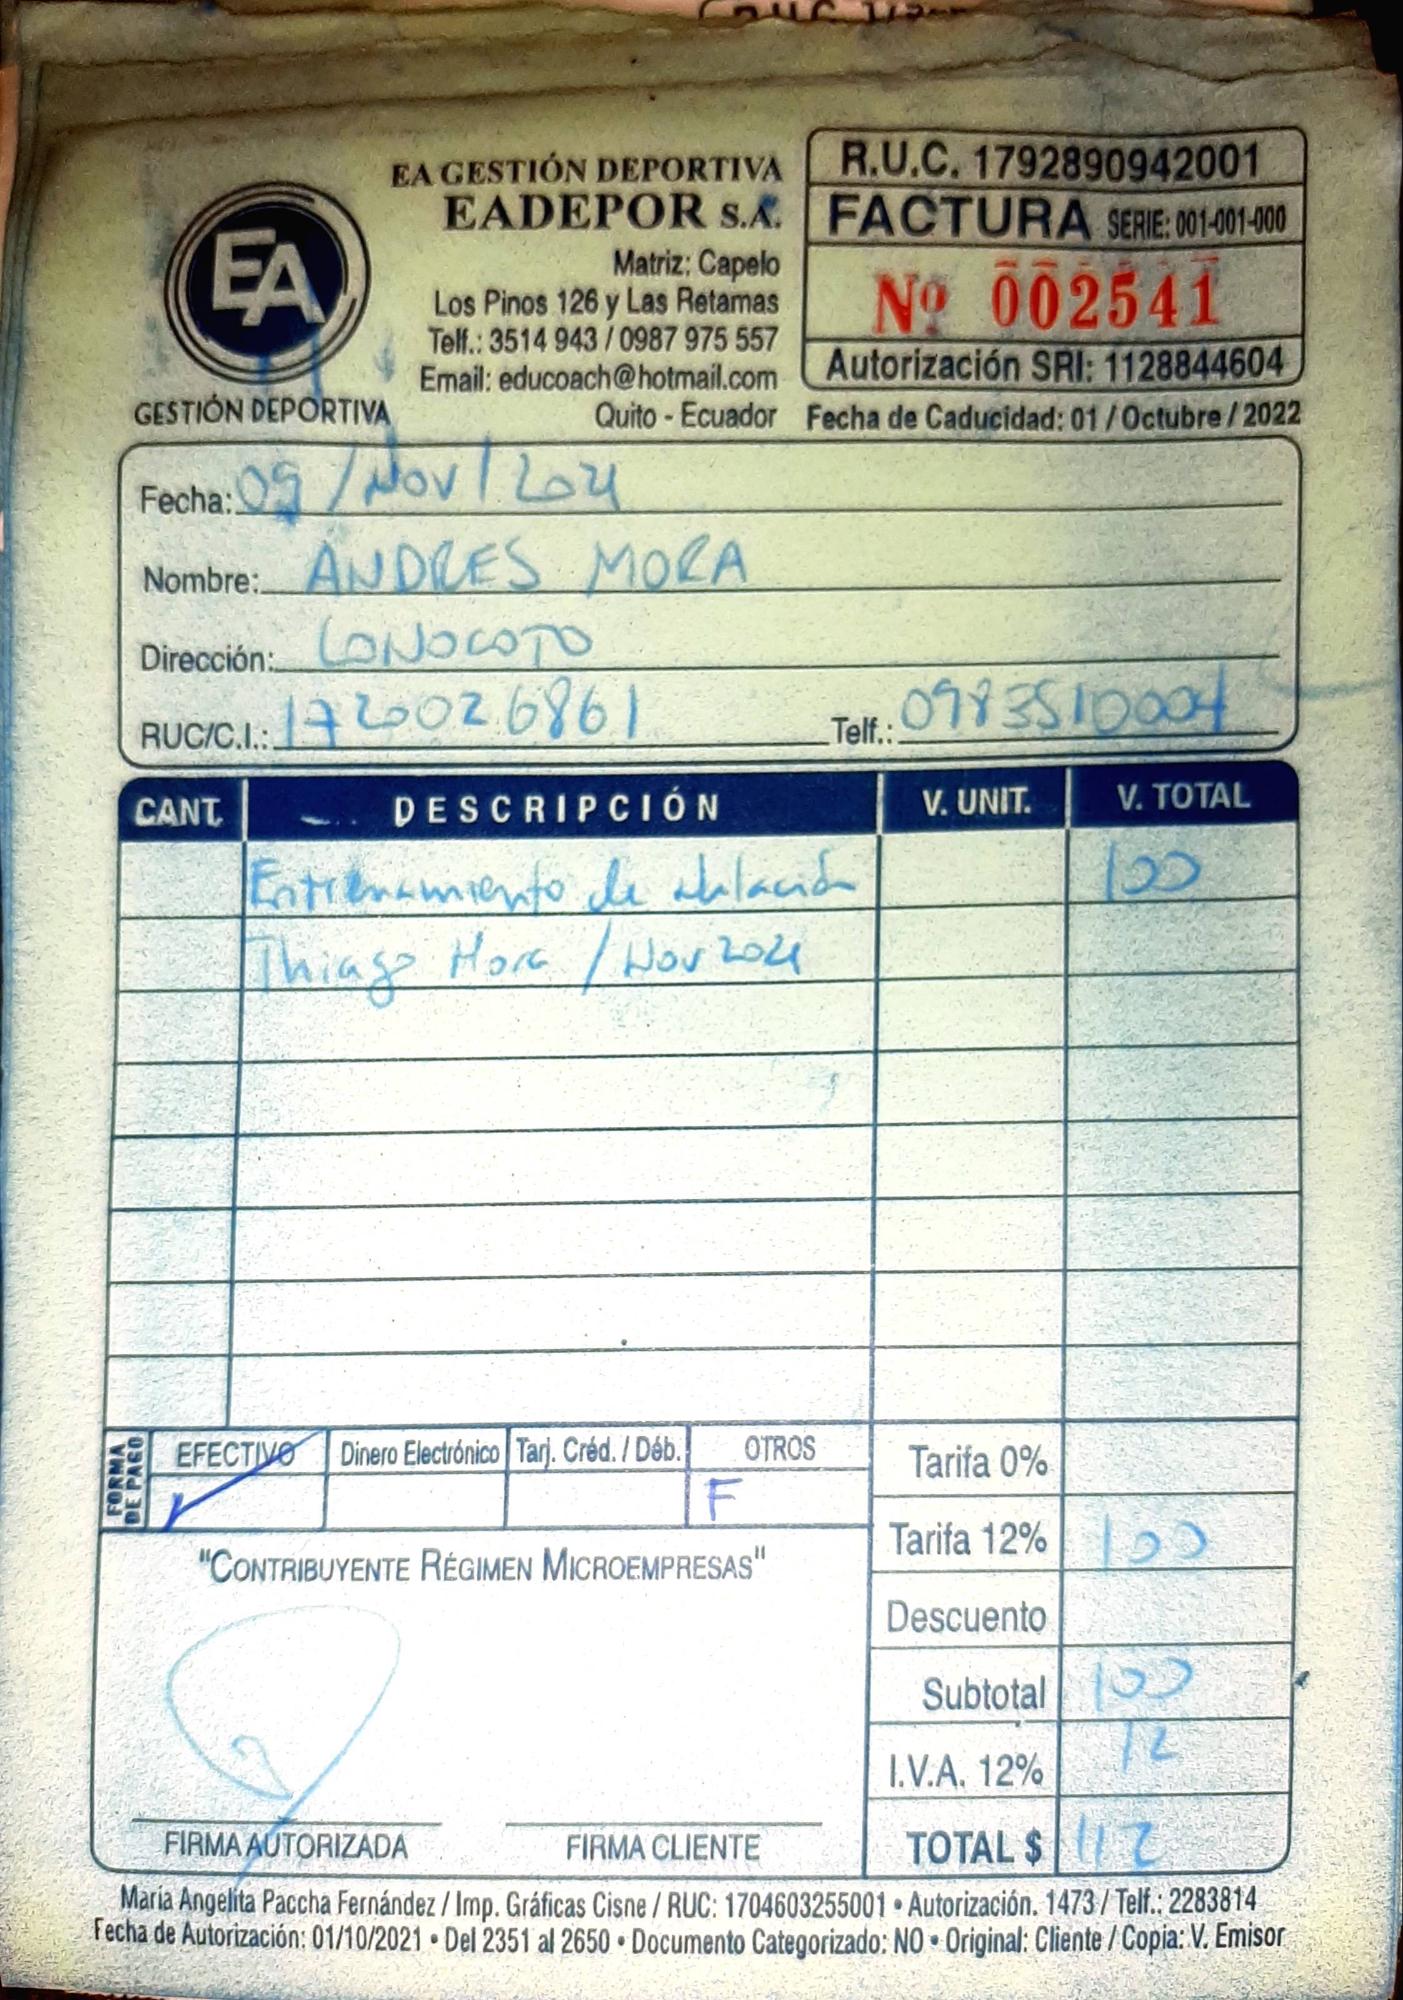 EA GESTIÓN DEPORTIVA
EADEPOR S.A.
Matriz: Capelo
Los Pinos 126 y Las Retamas
Telf.: 3514 943 / 0987 975 557
Email: educoach@hotmail.com
Quito - Ecuador
EA
GESTIÓN DEPORTIVA
R.U.C. 1792890942001
FACTURA SERIE: 001-001-000
Nº 002541
Autorización SRI: 1128844604
Fecha de Caducidad: 01 / Octubre / 2022
Fecha: 09 / Nov / 2021
Nombre: ANDRES MORA
Dirección: CONOCOTO
RUC/C.I.: 1720026861 Telf.: 0983510004
CANT. DESCRIPCIÓN V. UNIT. V. TOTAL
Entrenamiento de natación 100
Thiago Mora / Nov 2021
FORMA DE PAGO
EFECTIVO Dinero Electrónico Tarj. Créd. / Déb. OTROS
F
Tarifa 0%
Tarifa 12% 100
Descuento
Subtotal 100
I.V.A. 12% 12
TOTAL $ 112
"CONTRIBUYENTE RÉGIMEN MICROEMPRESAS"
FIRMA AUTORIZADA FIRMA CLIENTE
María Angelita Paccha Fernández / Imp. Gráficas Cisne / RUC: 1704603255001 • Autorización. 1473 / Telf.: 2283814
Fecha de Autorización: 01/10/2021 • Del 2351 al 2650 • Documento Categorizado: NO • Original: Cliente / Copia: V. Emisor